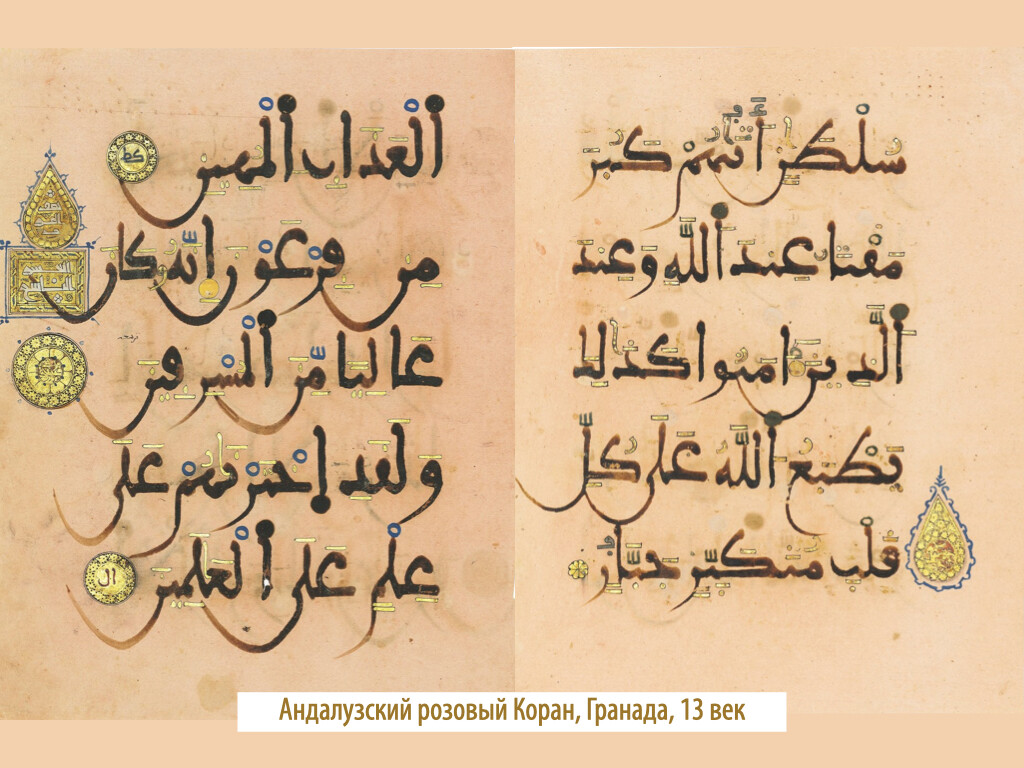 سلطن أتىهم كبر
مقتا عند الله وعند
الذين امنوا كذلك
يطبع الله على كل
قلب متكبر جبار
العذاب المهين
من فرعون انه كان
عاليا من المسرفين
ولقد اخترنهم على
علم على العلمين
Андалузский розовый Коран, Гранада, 13 век